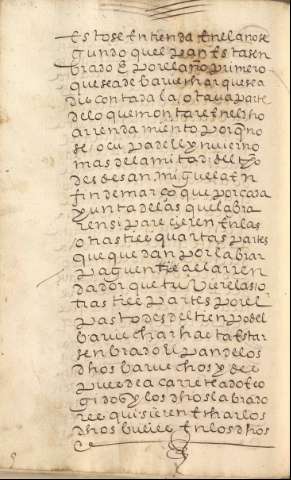 Esto se Entienda En el año se
gundo que el pan Esta sen
brado E por el año primero
que sea de barvechar que sea
descontada la otava parte
de lo que montare En el dho
arrendamiento porq no
se ocupa del y nuevino
mas de la mitad del tpo
desde san miguel a En
fin de março que por cada
yunta de las que labra
ren si pareçieren En las
otras tres quartas partes
que quedan por labrar
paguen tie al arren
dador que tuviere las o
tras tres partes por el
pasto desdel tienpo del
barvechar hasta Estar
senbrado El pan de los
dhos barvechos y des
pues de acarreado E co
gido y los dhos labrado
res quisieren Echar los
dhos bueies En los dhos